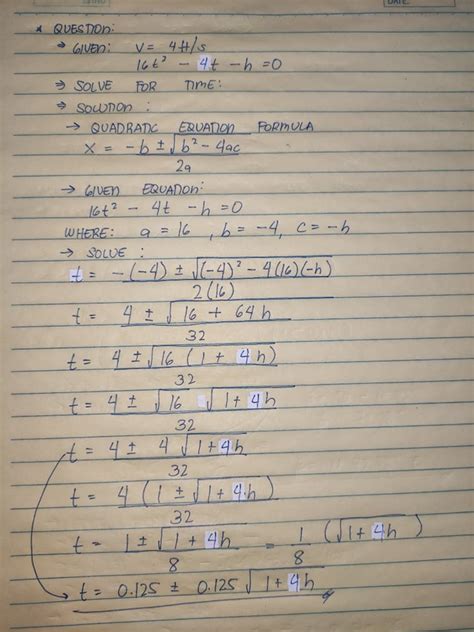 DATE:
* QUESTION:
→ GIVEN: V = 4 ft/s
16t² - 4t - h = 0
→ SOLVE FOR TIME:
→ SOLUTION :
→ QUADRATIC EQUATION FORMULA
X = -b ± √b² - 4ac / 2a
→ GIVEN EQUATION:
16t² - 4t - h = 0
WHERE: a = 16 , b = -4, c = -h
→ SOLVE :
t = -(-4) ± √(-4)² - 4(16)(-h) / 2(16)
t = 4 ± √16 + 64h / 32
t = 4 ± √16 (1 + 4h) / 32
t = 4 ± √16 √1 + 4h / 32
t = 4 ± 4√1+4h / 32
t = 4 (1 ± √1+4h) / 32
t = 1 ± √1 + 4h / 8 = 1 / 8 (√1 + 4h)
t = 0.125 ± 0.125 √1+4h